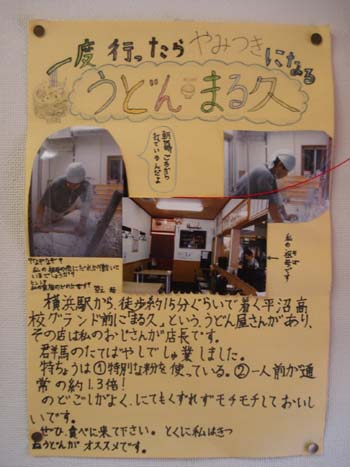 一度行ったらやみつきになる
うどん・まる久
横浜駅から、徒歩約15分ぐらいで着く平沼高
校グランド前に「まる久」という、うどん屋さんがあり、
その店は私のおじさんが店長です。
群馬のたてばやしでしゅ業しました。
特ちょうは①特別な粉を使っている。②一人前が通
常の約1.3倍!
のどごしがよく、にてもくずれずモチモチしておいし
いです。
ぜひ、食べに来て下さい。とくに私はきつ
ねうどんがオススメです。